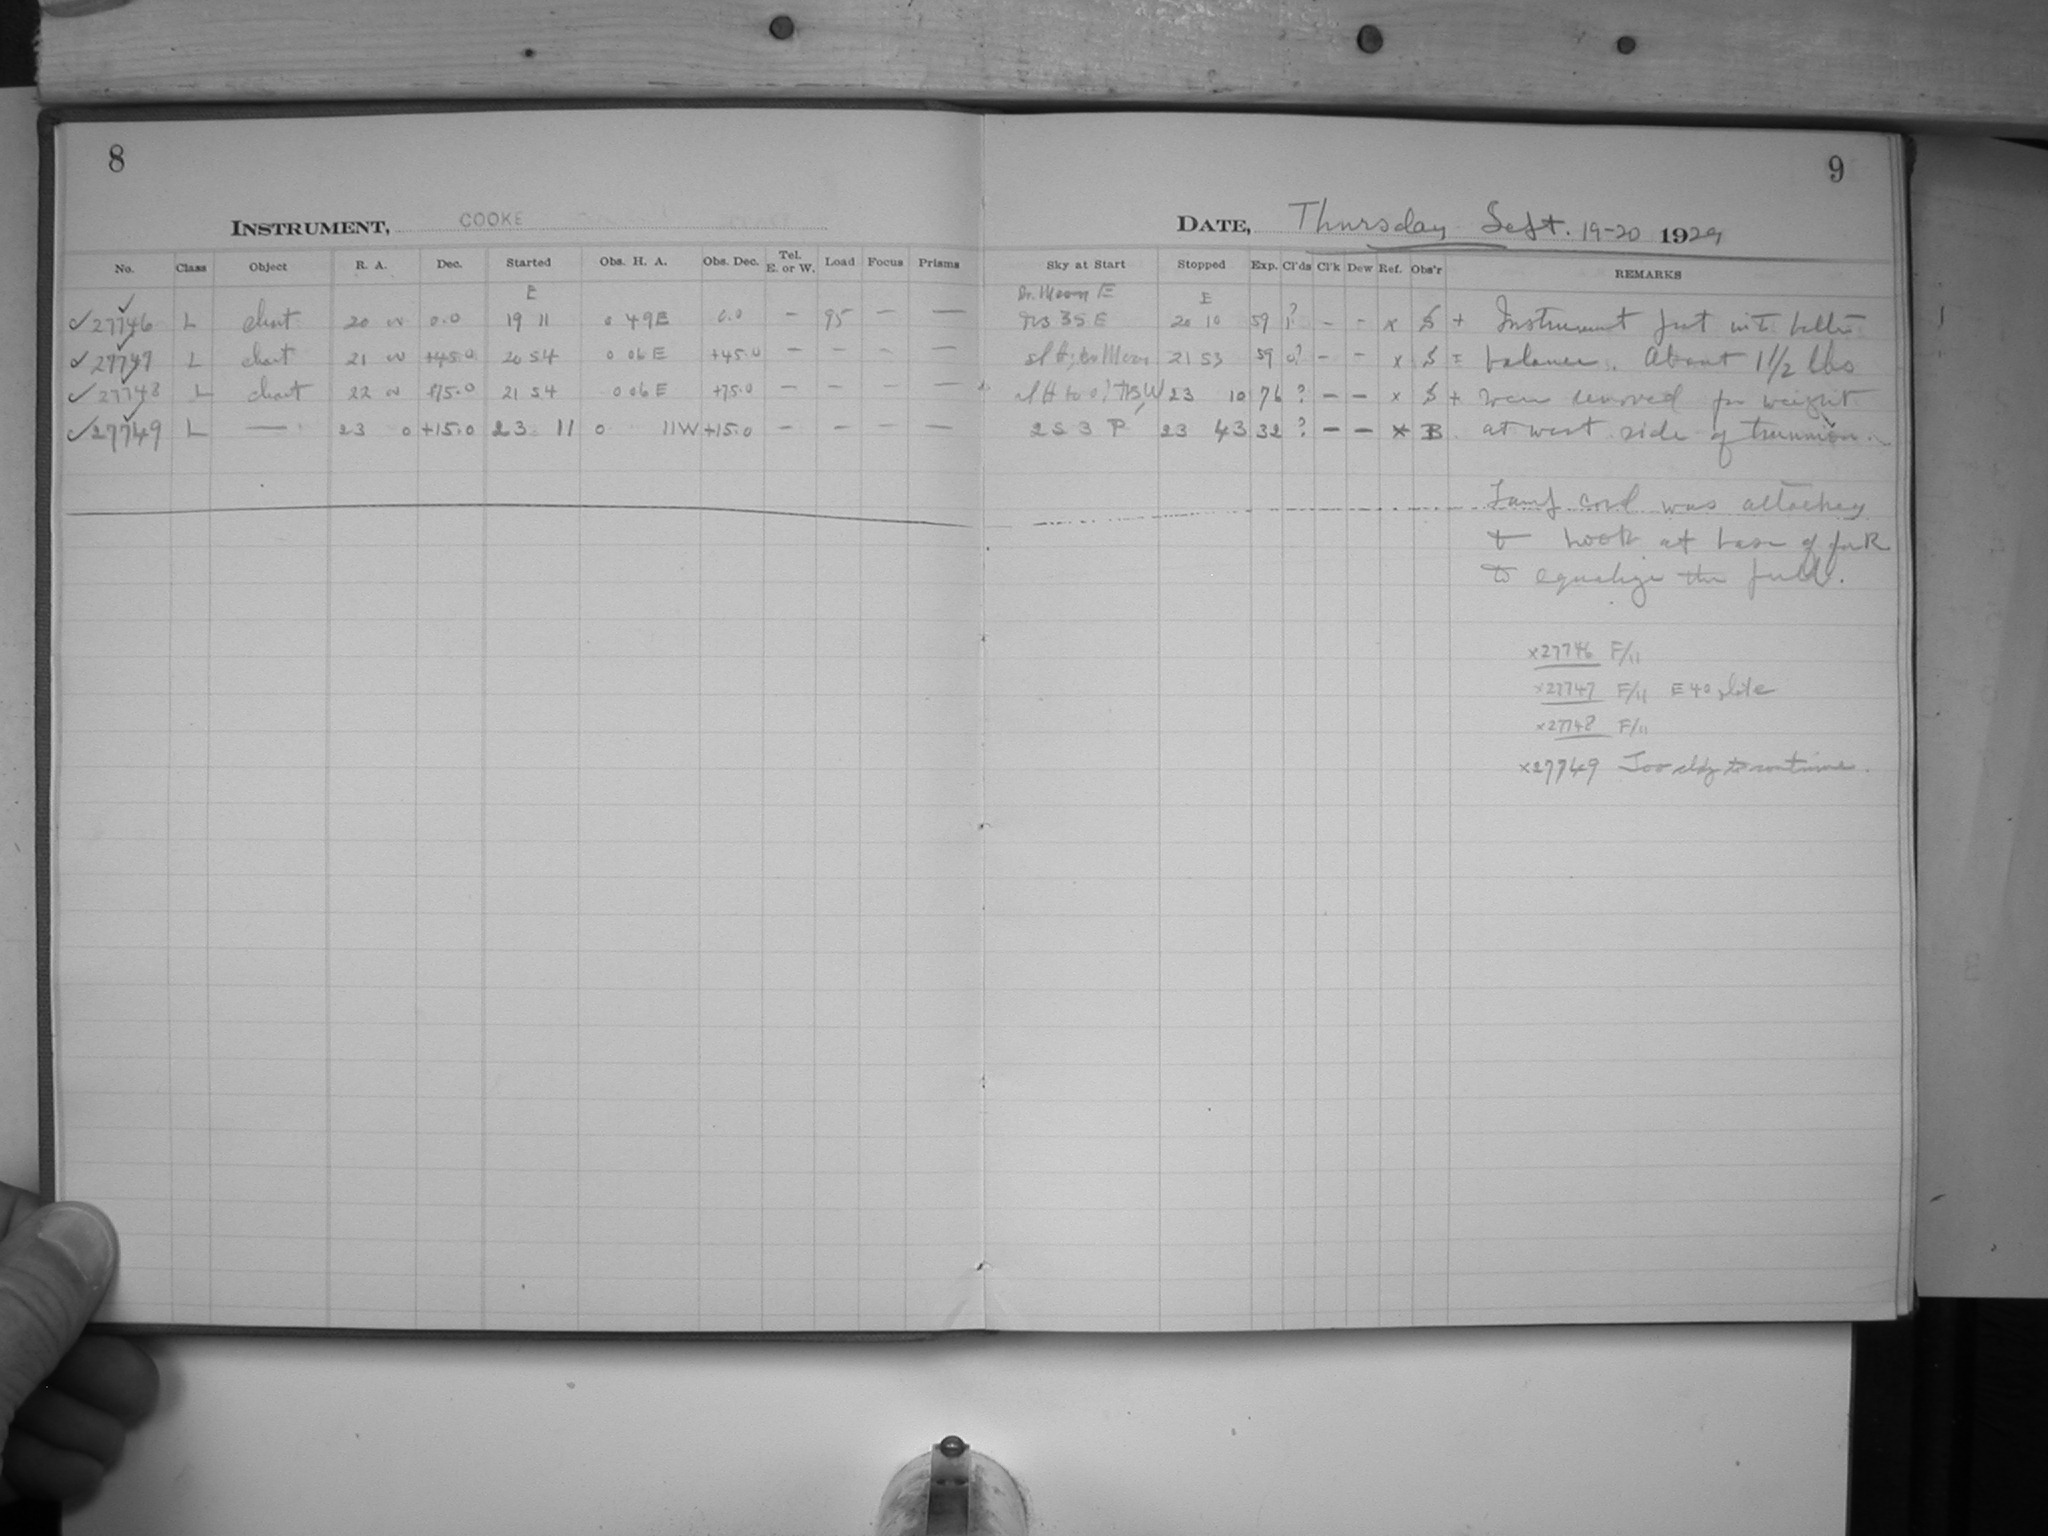 8
INSTRUMENT, COOKE
No. Class Object R. A. Dec. Started Obs. H. A. Obs. Dec. Tel. E. or W. Load Focus Prisms
E
✓27746 L chart 20 0.0 19 11 0 49E 0.0 – 95 – –
✓27747 L chart 21 +45.0 20 54 0 06E +45.0 – – – –
✓27748 L chart 22 +75.0 21 54 0 06E +75.0 – – – –
✓27749 L — 23 0 +15.0 23 11 0 11W +15.0 – – – –
9
DATE, Thursday Sept. 19-20 1929
Sky at Start Stopped Exp. Cl'ds Cl'k Dew Ref. Obs'r REMARKS
Moon E E
3S E 20 10 59 1? – – x S + Instrument put into better
Moon 21 53 59 0? – – x S = balance. About 1 1/2 lbs
23 10 76 ? – – x S + were removed for weight
2 S 3 P 23 43 32 ? – – x B at west side of trunnion.
Lamp cord was attached
to hook at base of fork
to equalize the pull.
x27746 F/11
x27747 F/11 E 40 plate
x27748 F/11
x27749 Too cldy to continue.